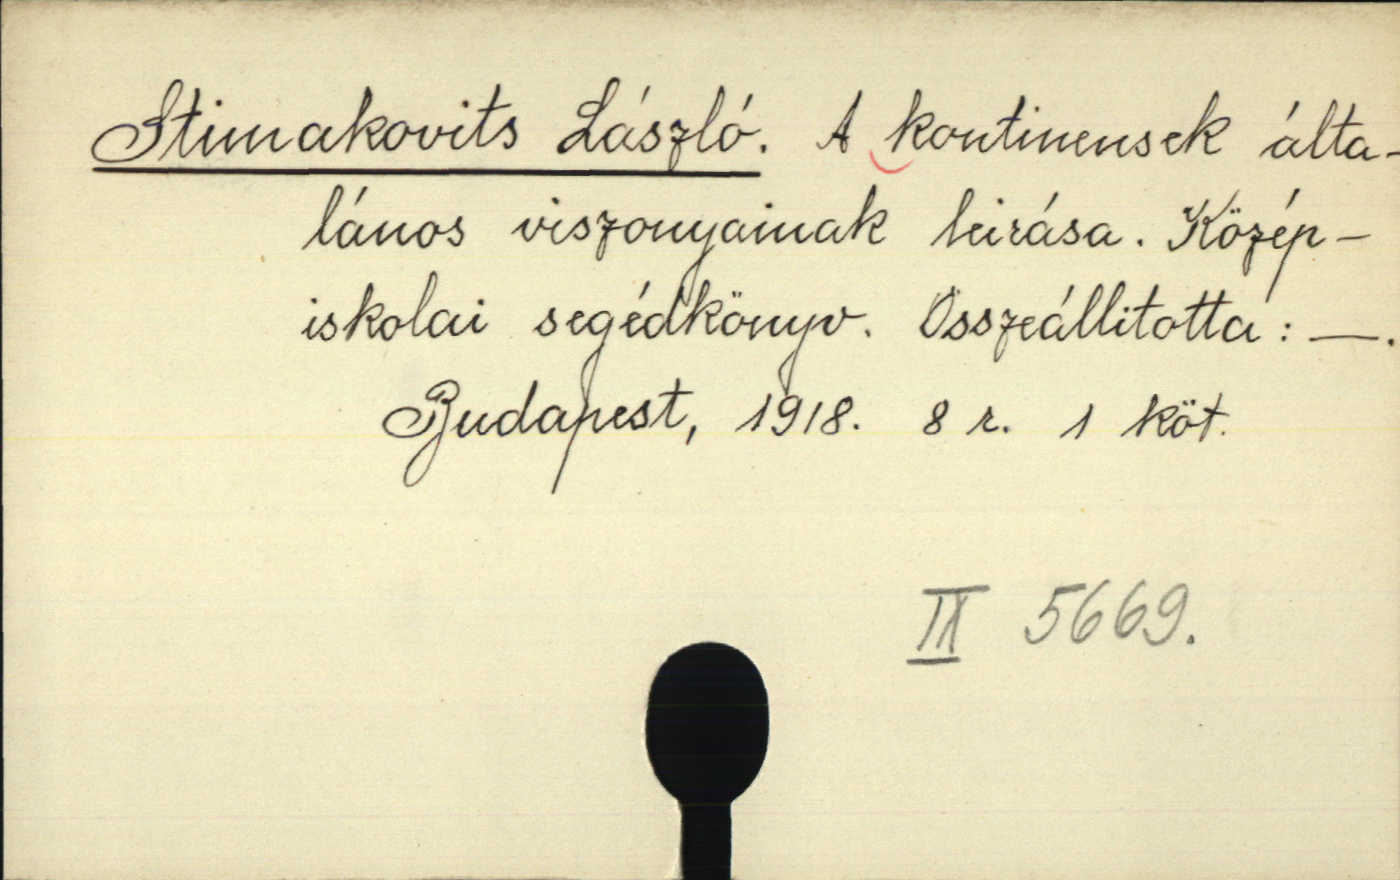 Stimakovits László. A kontinensek álta-
lános viszonyainak leirása. Közép-
iskolai segédkönyv. Összeállitotta: —.
Budapest, 1918. 8 r. 1 köt.
IX 5669.